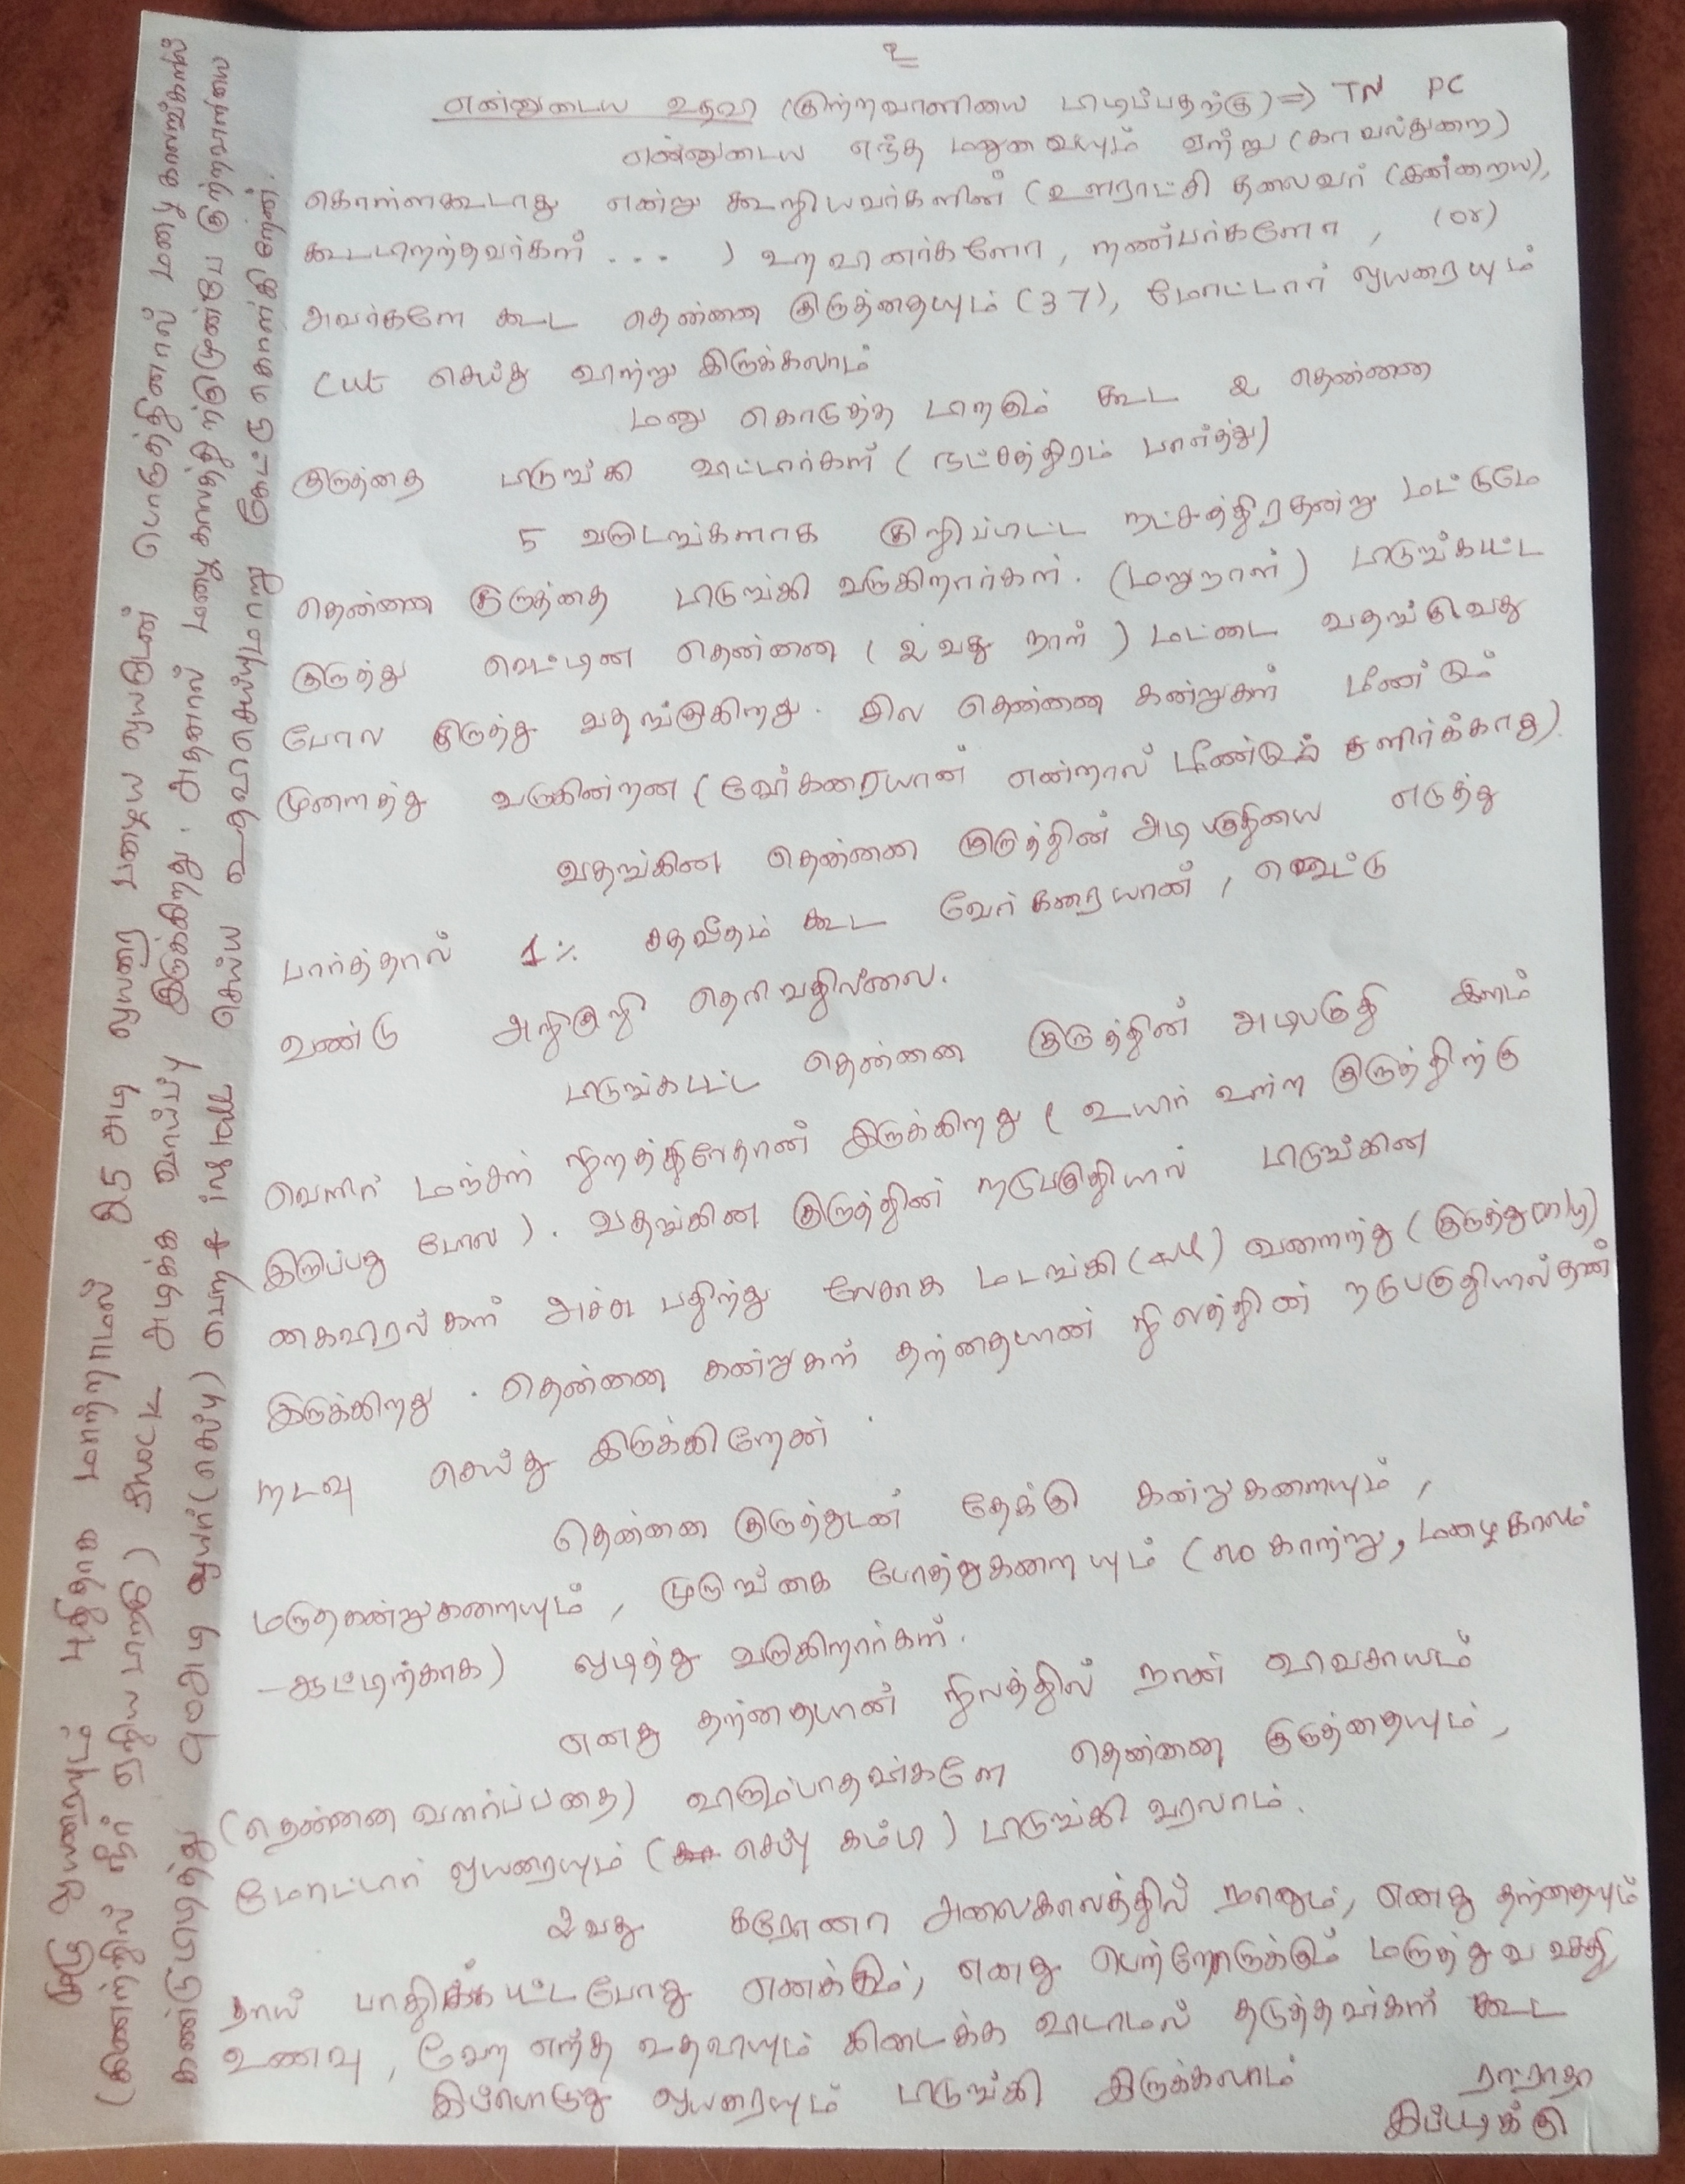 உ
என்னுடைய உதவி (குற்றவாளியை பிடிப்பதற்கு) => TN PC
என்னுடைய எந்த மனுவையும் ஏற்று (காவல்துறை)
கொள்ளகூடாது என்று கூறியவர்களின் (ஊராட்சி தலைவர் (இன்றைய),
கூடபிறந்தவர்கள் . . . ) உறவினர்களோ, நண்பர்களோ, (or)
அவர்களே கூட தென்னை குருத்தையும் (37), மோட்டார் ஒயரையும்
cut செய்து விற்று இருக்கலாம்
மனு கொடுத்த பிறகும் கூட 2 தென்னை
குருத்தை பிடுங்கி விட்டார்கள் (நட்சத்திரம் பார்த்து)
5 வருடங்களாக குறிப்பிட்ட நட்சத்திரதன்று மட்டுமே
தென்னை குருத்தை பிடுங்கி வருகிறார்கள். (மறுநாள்) பிடுங்கபட்ட
குருத்து வெட்டின தென்னை (2வது நாள்) மட்டை வதங்குவது
போல குருத்து வதங்குகிறது. சில தென்னை கன்றுகள் மீண்டும்
முளைத்து வருகின்றன (வேர்கரையான் என்றால் மீண்டும் துளிர்க்காது).
வதங்கின தென்னை குருத்தின் அடி பகுதியை எடுத்து
பார்த்தால் 1% சதவீதம் கூட வேர் கரையான்,
வண்டு அறிகுறி தெரிவதில்லை.
பிடுங்கபட்ட தென்னை குருத்தின் அடிபகுதி இளம்
வெளிர் மஞ்சள் நிறத்திலேதான் இருக்கிறது (உயிர் உள்ள குருத்திற்கு
இருப்பது போல). வதங்கின குருத்தின் நடுபகுதியில் பிடுங்கின
கைவிரல்கள் அச்சு பதிந்து லேசாக மடங்கி வளைந்து (குருத்து only)
இருக்கிறது. தென்னை கன்றுகள் தந்தையின் நிலத்தின் நடுபகுதியில்தான்
நடவு செய்து இருக்கிறேன்.
தென்னை குருத்துடன் தேக்கு கன்றுகளையும்,
மருதகன்றுகளையும், முருங்கை போத்துகளையும் (no காற்று, மழைகாலம்
ஒடித்து வருகிறார்கள்.
எனது தந்தையின் நிலத்தில் நான் விவசாயம்
(தென்னை வளர்ப்பதை) விரும்பாதவர்களே தென்னை குருத்தையும்,
மோட்டார் ஒயரையும் (செப்பு கம்பி) பிடுங்கி வரலாம்.
2வது கரோனா அலைகாலத்தில் நானும், எனது தந்தையும்
தாய் பாதிக்கபட்டபோது எனக்கும், எனது பெற்றோருக்கும் மருத்துவ வசதி
உணவு, வேற எந்த உதவியும் கிடைக்க விடாமல் தடுத்தவர்கள் கூட
இப்பொழுது ஒயரையும் பிடுங்கி இருக்கலாம்
இப்படிக்கு
முழு ஒயரையும் புதிதாக மாற்றாமல் 25 அடி ஒயரை பழைய ஒயருடன் பொருத்தினால் மழை காலங்களில்
(கிணற்றில் நீர் ஏறிய பிறகு) shock அடிக்க வாய்ப்பு இருக்கிறது. அதனால் மழை காலத்திற்குமுன்பே குற்றவாளியை
கண்டுபிடித்து 90அடி ஒயர் (செப்பு) பெற & install செய்ய உதவிசெய்யுமாறு கேட்டு கொள்கிறேன்.